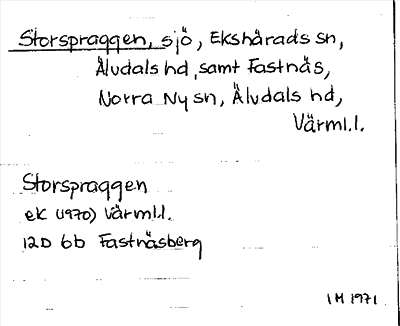 Storspraggen, sjö, Ekshärads sn,
Älvdals hd, samt Fastnäs,
Norra Ny sn, Älvdals hd,
Värml.l.
Storspraggen
ek (1970) Värml.l.
12D 6b Fastnäsberg
IH 1971